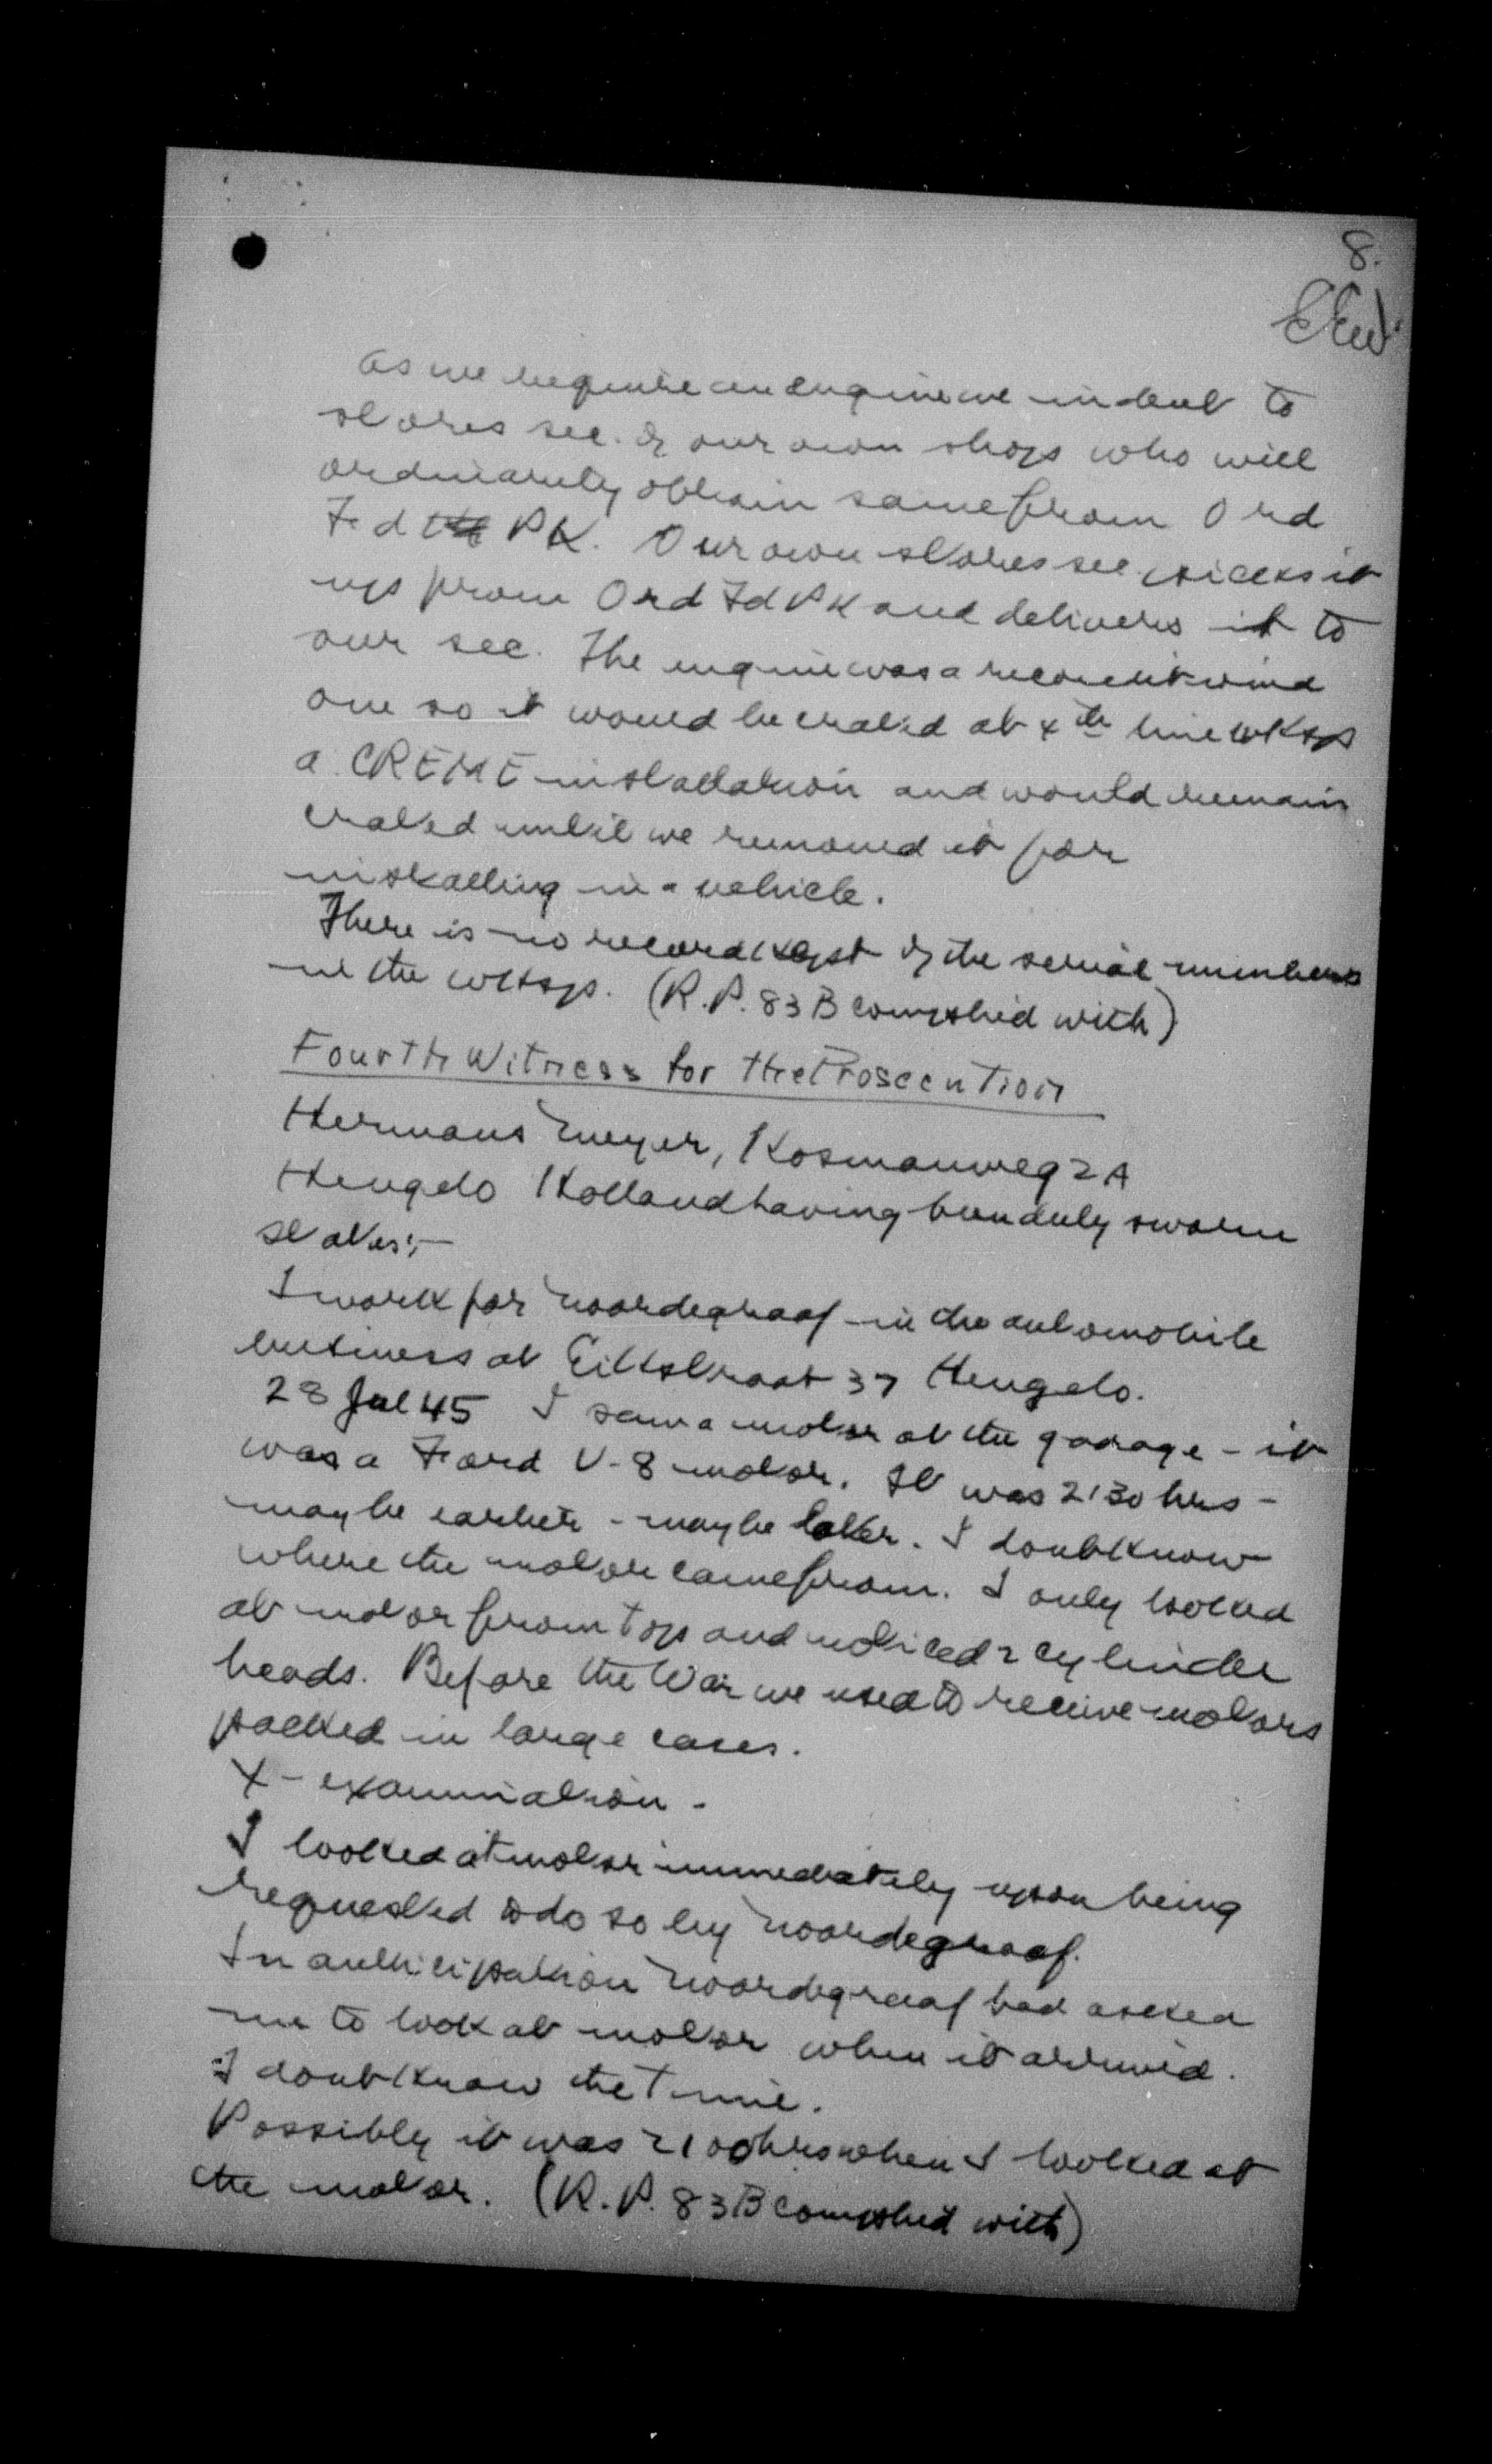 8.
As we require an engine we indent to
stores sec. of our own shops who will
ordinarily obtain same from Ord
Fd PK. Our own stores sec. picks it
up from Ord Fd PK and delivers it to
our sec. The engine was a reconditioned
one so it would be crated at 4th line wksps
a CREME installation and would remain
crated until we removed it for
installing in a vehicle.
There is no record kept of the serial numbers
in the wksps. (R.P. 83 B complied with)
Fourth Witness for the Prosecution
Hermans Meyer, Kosmanweg 2A
Hengelo Holland having been duly sworn
states:-
I work for Noordegraaf in the automobile
business at 37 Hengelo.
28 Jul 45 I saw a motor at the garage - it
was a Ford V-8 motor. It was 2130 hrs -
maybe earlier - maybe later. I dont know
where the motor came from. I only looked
at motor from top and noticed 2 cylinder
heads. Before the War we used to receive motors
packed in large cases.
X-examination -
I looked at motor immediately upon being
requested to do so by Noordegraaf.
In anticipation Noordegraaf had asked
me to look at motor when it arrived.
I dont know the time.
Possibly it was 2100 hrs when I looked at
the motor. (R.P. 83 B complied with)